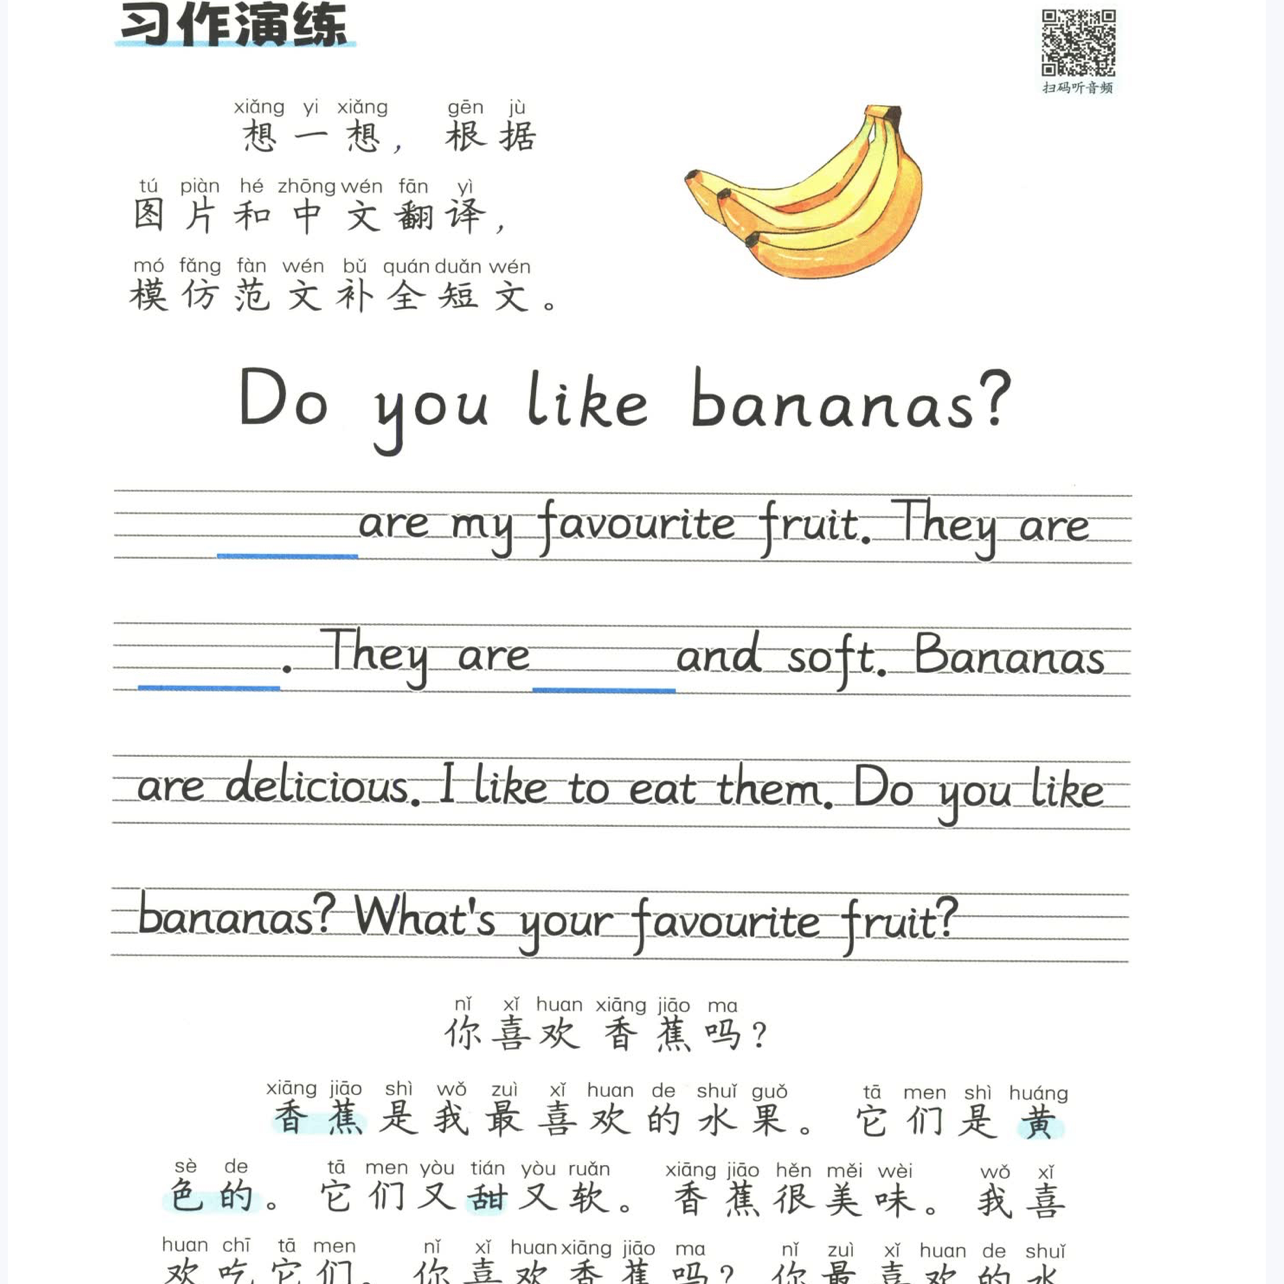 习作演练
扫码听音频
xiǎng yi xiǎng gēn jù
想一想，根据
tú piàn hé zhōng wén fān yì
图片和中文翻译，
mó fǎng fàn wén bǔ quán duǎn wén
模仿范文补全短文。
Do you like bananas?
are my favourite fruit. They are
. They are and soft. Bananas
are delicious. I like to eat them. Do you like
bananas? What's your favourite fruit?
nǐ xǐ huan xiāng jiāo ma
你喜欢香蕉吗？
xiāng jiāo shì wǒ zuì xǐ huan de shuǐ guǒ tā men shì huáng
香蕉是我最喜欢的水果。它们是黄
sè de tā men yòu tián yòu ruǎn xiāng jiāo hěn měi wèi wǒ xǐ
色的。它们又甜又软。香蕉很美味。我喜
huan chī tā men nǐ xǐ huan xiāng jiāo ma nǐ zuì xǐ huan de shuǐ
欢吃它们。你喜欢香蕉吗？你最喜欢的水